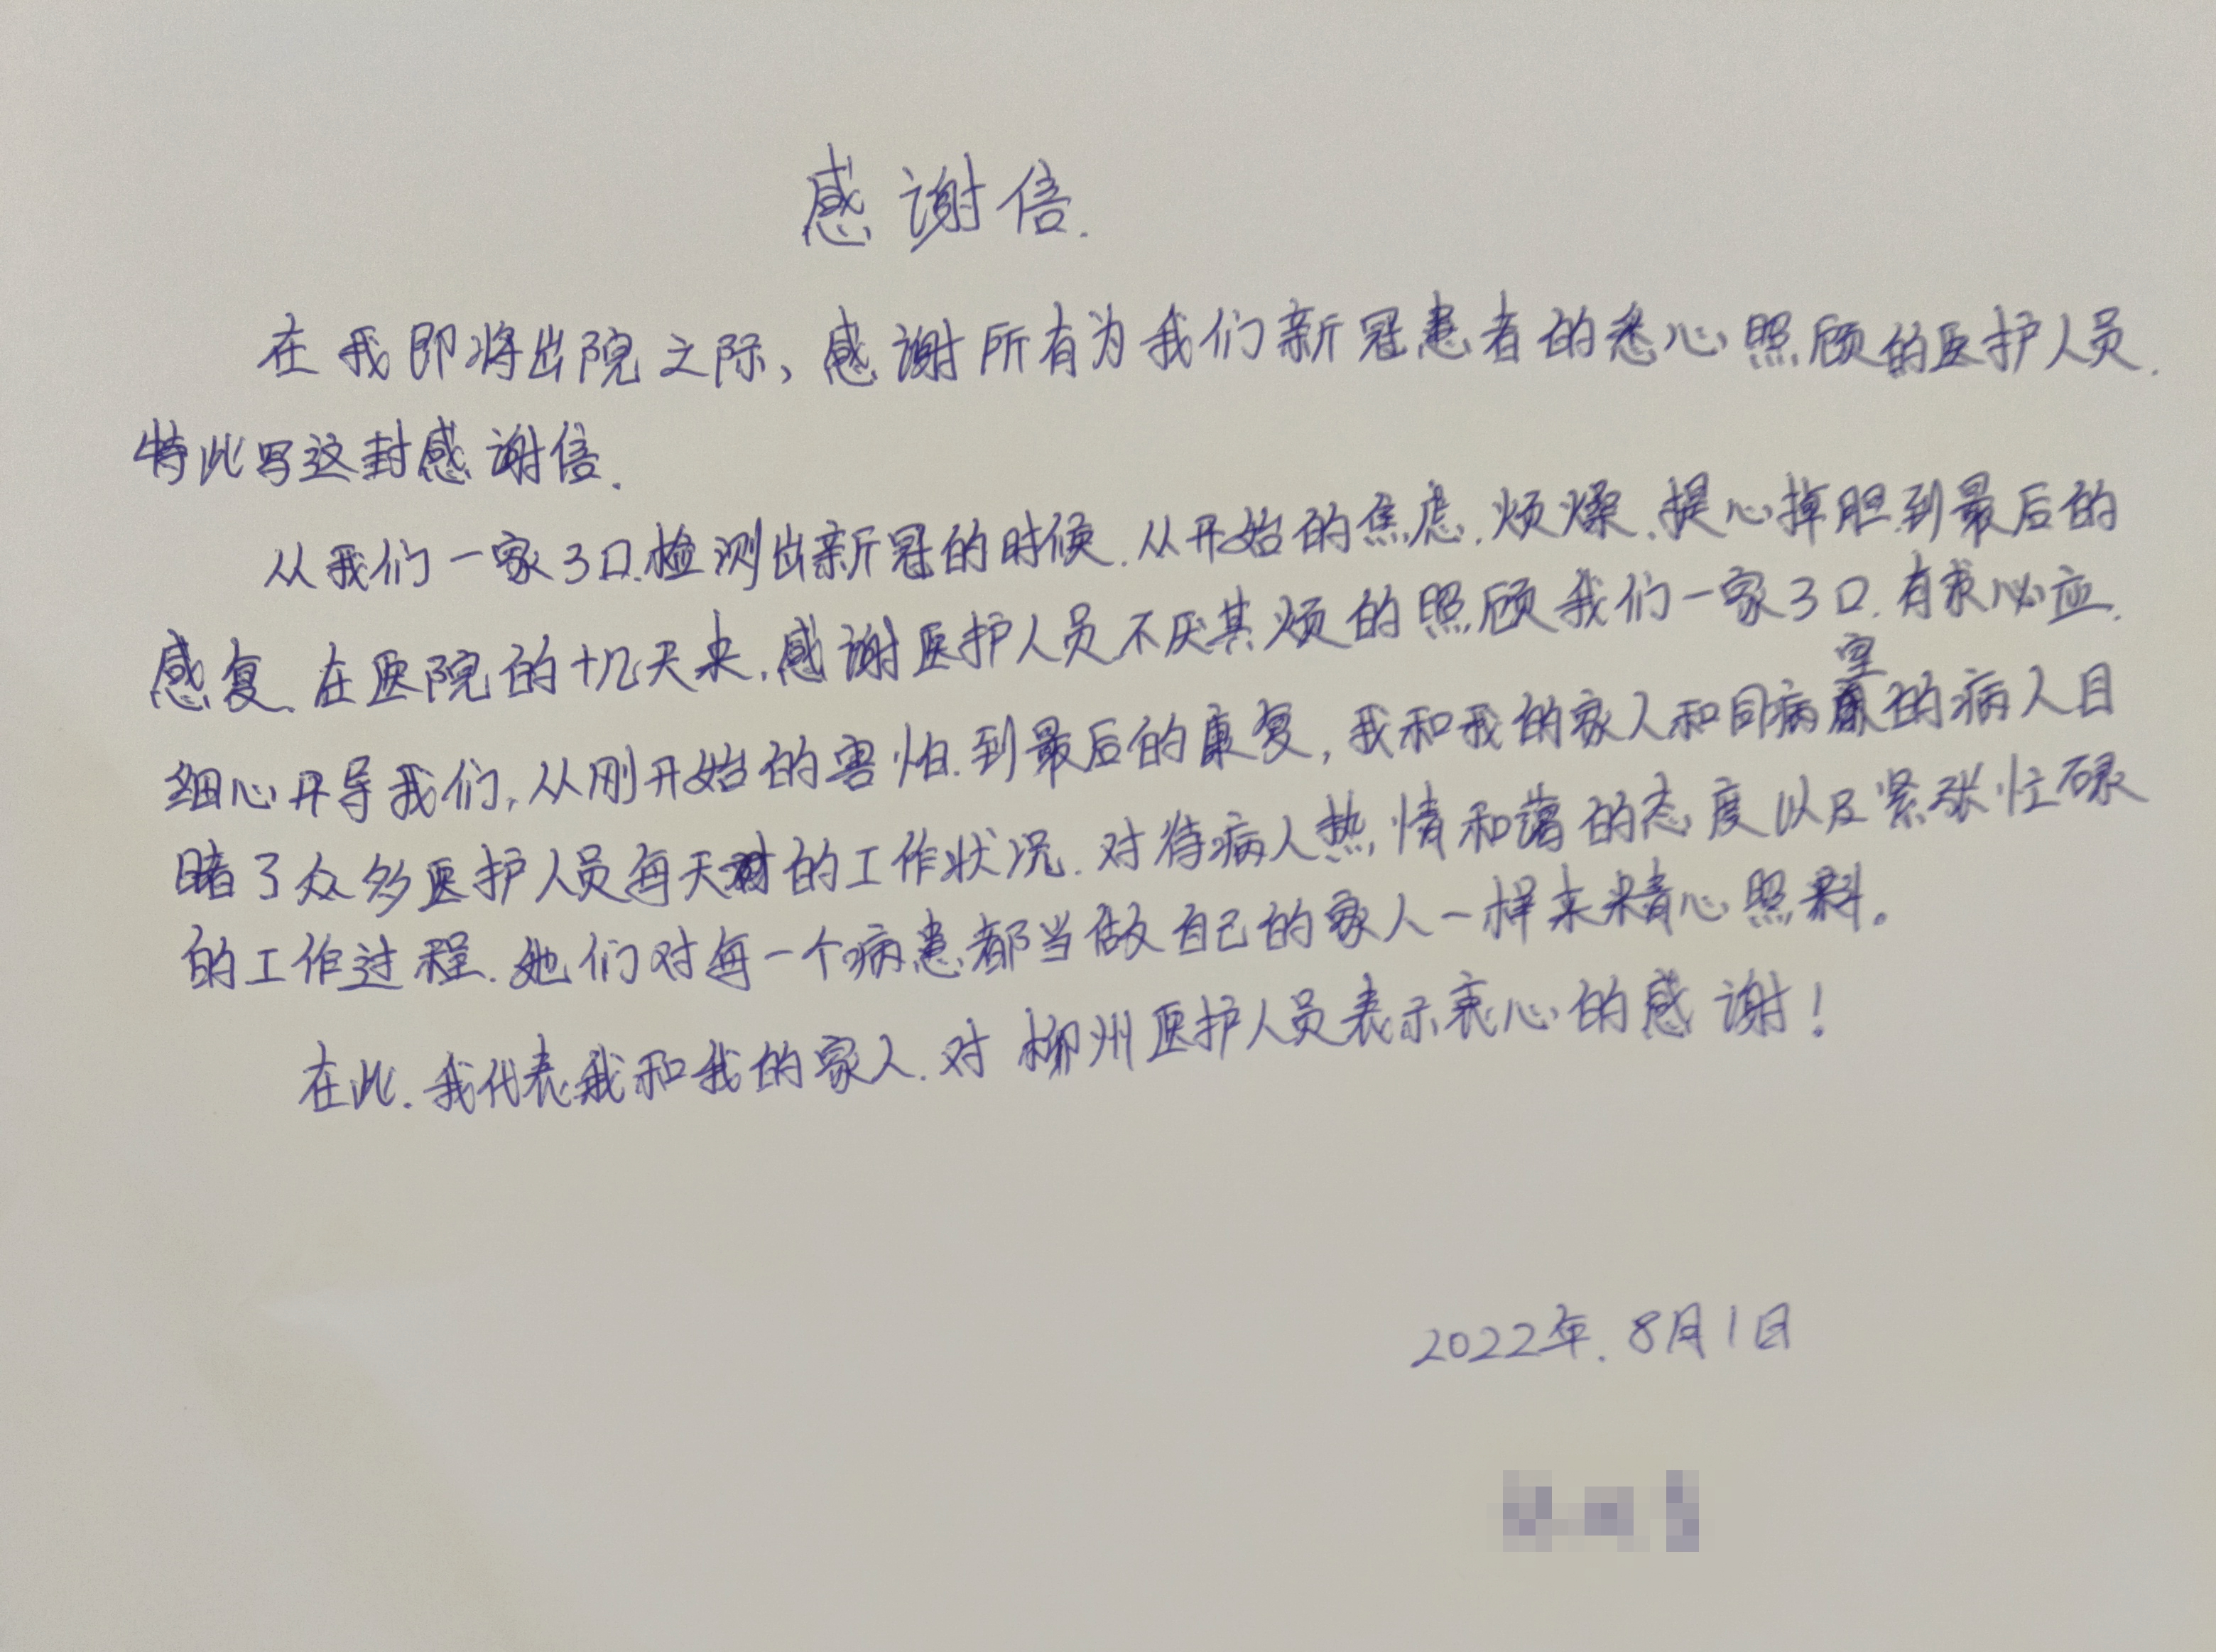 感谢信.
在我即将出院之际,感谢所有为我们新冠患者的悉心照顾的医护人员.
特此写这封感谢信.
从我们一家3口.检测出新冠的时候.从开始的焦虑.烦燥.提心掉胆.到最后的
感复.在医院的十几天来.感谢医护人员不厌其烦的照顾我们一家3口.有求必应.
细心开导我们,从刚开始的害怕.到最后的康复,我和我的家人和同病室的病人目
睹了众多医护人员每天的工作状况.对待病人热情和蔼的态度以及紧张忙碌
的工作过程.她们对每一个病患都当做自己的家人一样来精心照料。
在此.我代表我和我的家人.对柳州医护人员表示衷心的感谢!
2022年.8月1日